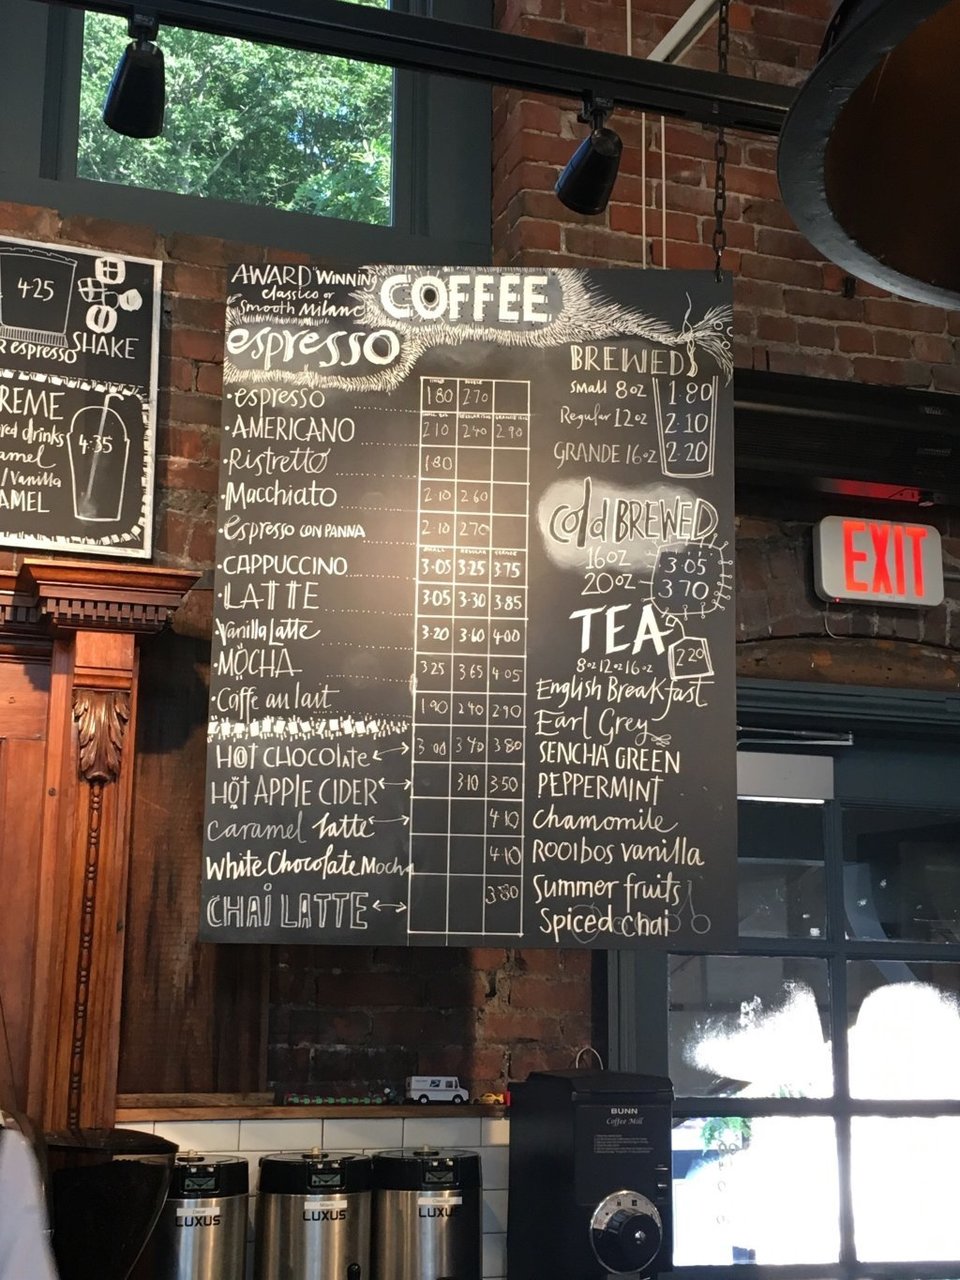 4.25
ESPRESSO SHAKE
REME
drinks
amel
/Vanilla
AMEL
4.35
AWARD WINNING
Classico or
Smooth Milano
COFFEE
espresso
• espresso 1.80 2.70
SMALL REGULAR
• AMERICANO 2.10 2.40 2.90
• Ristretto 1.80
• Macchiato 2.10 2.60
• espresso CON PANNA 2.10 2.70
SMALL REGULAR GRANDE
• CAPPUCCINO 3.05 3.25 3.75
• LATTE 3.05 3.30 3.85
• Vanilla Latte 3.20 3.60 4.00
• MOCHA 3.25 3.65 4.05
• Caffe au lait 1.90 2.40 2.90
HOT CHOCOLATE 3.00 3.40 3.80
HOT APPLE CIDER 3.10 3.50
Caramel latte 4.10
White Chocolate Mocha 4.10
CHAI LATTE 3.80
BREWED
Small 8oz 1.80
Regular 12oz 2.10
GRANDE 16oz 2.20
Cold BREWED
16oz 3.05
20oz 3.70
TEA 2.20
8oz 12oz 16oz
English Breakfast
Earl Grey
SENCHA GREEN
PEPPERMINT
Chamomile
ROOIBOS vanilla
Summer fruits
Spiced chai
EXIT
BUNN
Coffee Mill
LUXUS
LUXUS
LUXUS